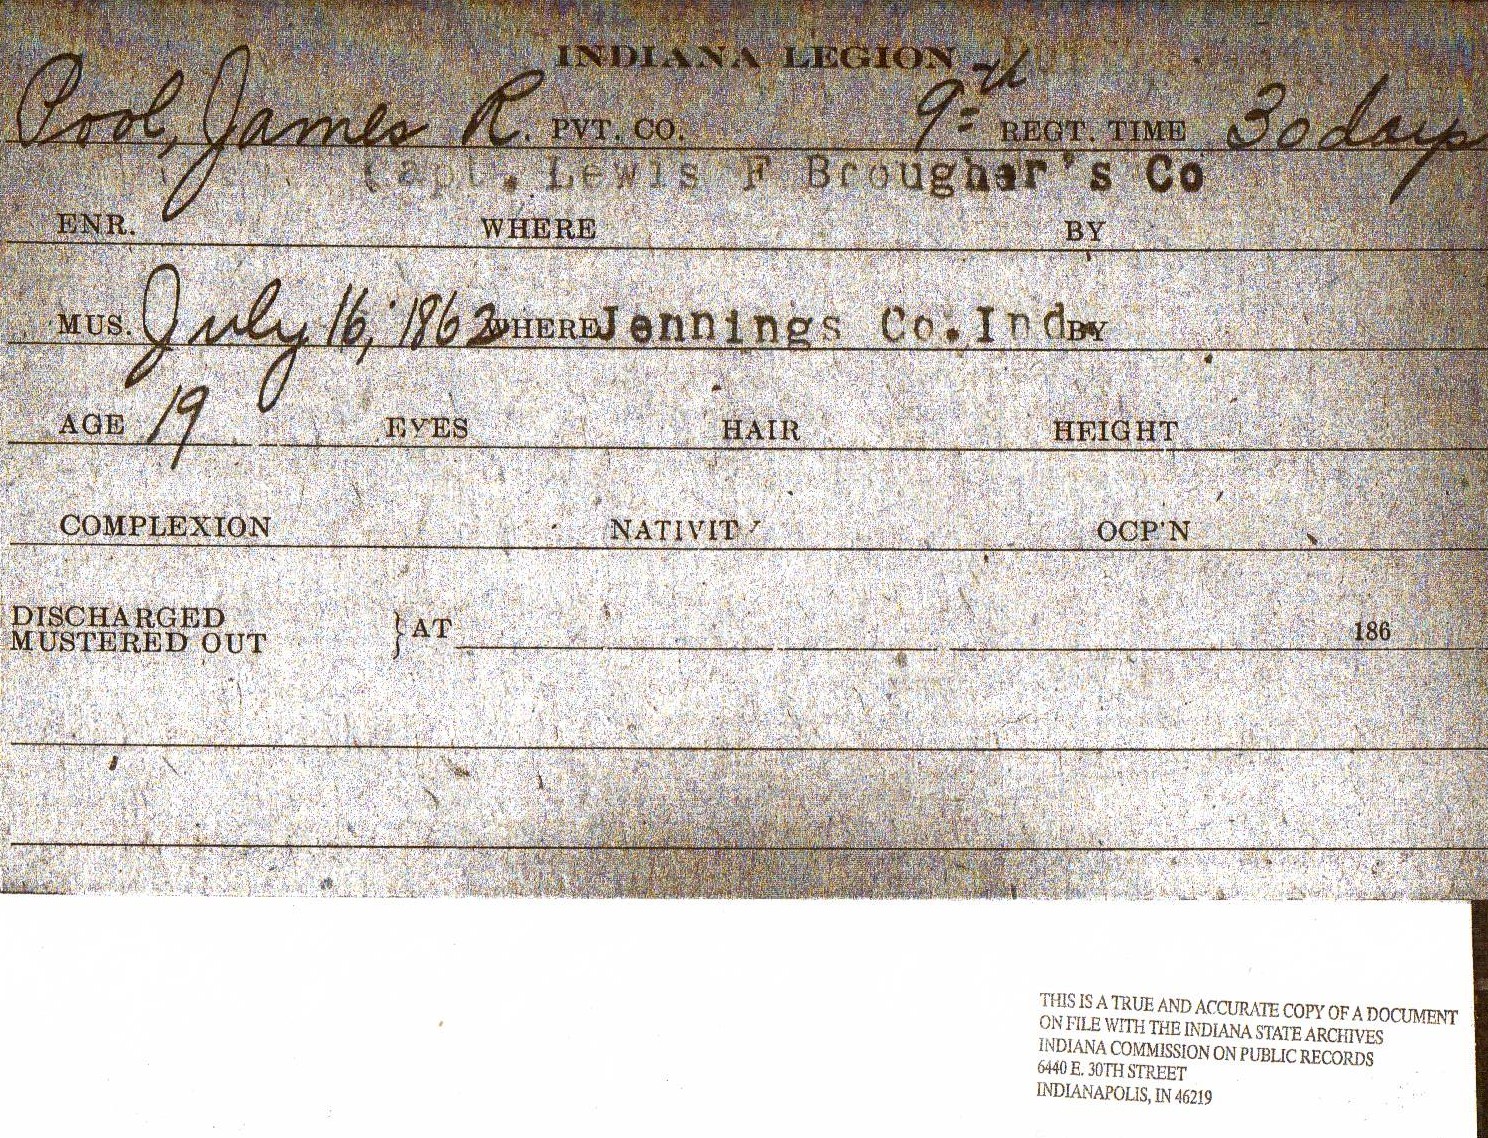 INDIANA LEGION
Pool, James R. PVT. CO. 9th REGT. TIME 30 days
Capt. Lewis F Brougher's Co
ENR. WHERE BY
MUS. July 16, 1863 WHERE Jennings Co. Ind BY
AGE 19 EYES HAIR HEIGHT
COMPLEXION NATIVITY OCP'N
DISCHARGED
MUSTERED OUT } AT 186
THIS IS A TRUE AND ACCURATE COPY OF A DOCUMENT
ON FILE WITH THE INDIANA STATE ARCHIVES
INDIANA COMMISSION ON PUBLIC RECORDS
6440 E. 30TH STREET
INDIANAPOLIS, IN 46219